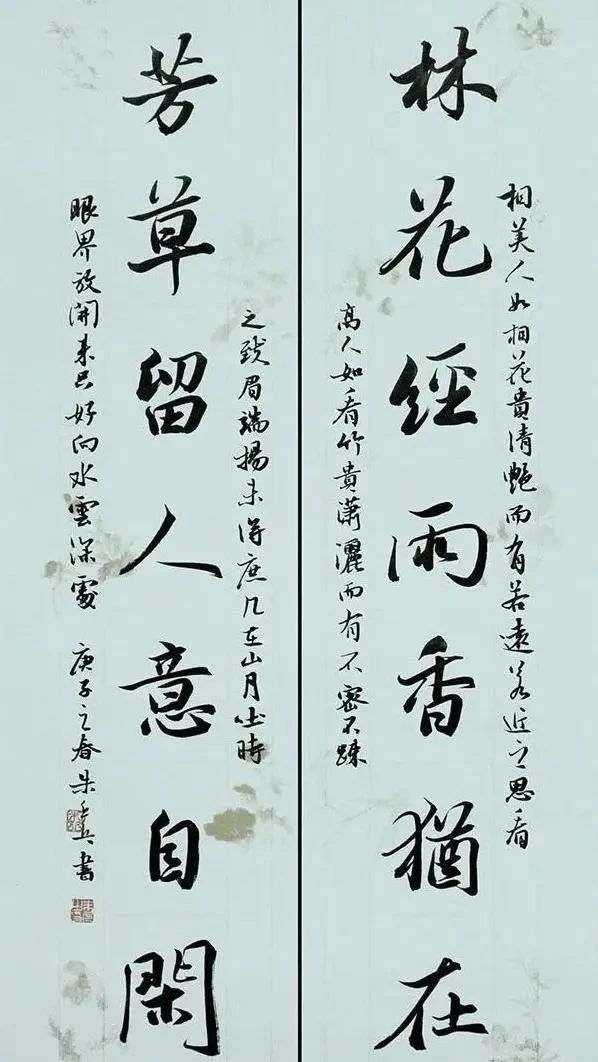 林花經雨香猶在
相美人如相花貴清艷而有若遠若近之思看
高人如看竹貴潇灑而有不密不疎
之致眉端揚未得庶几在山月吐時
芳草留人意自閑
眼界放開未只好向水雲深處
庚子之春朱書